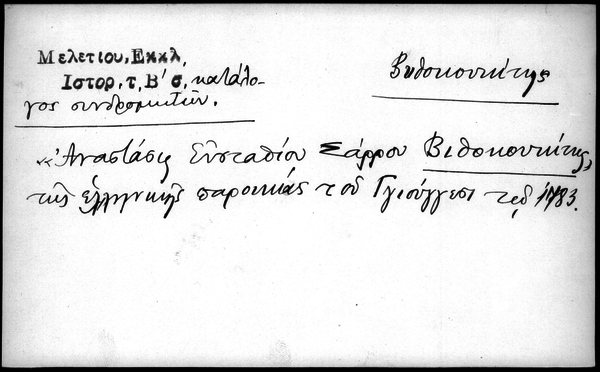 Μελετίου, Εκκλ,
Ιστορ, τ, Β' σ, κατάλο-
γος συνδρομητῶν.
Βυθοκουκίτης
«Ἀναστάσις Εὐσταθίου Σάρρου Βιθοκουκίτης,
τῆς ἑλληνικῆς παροικίας τοῦ Γγιούγγεσι 1783.